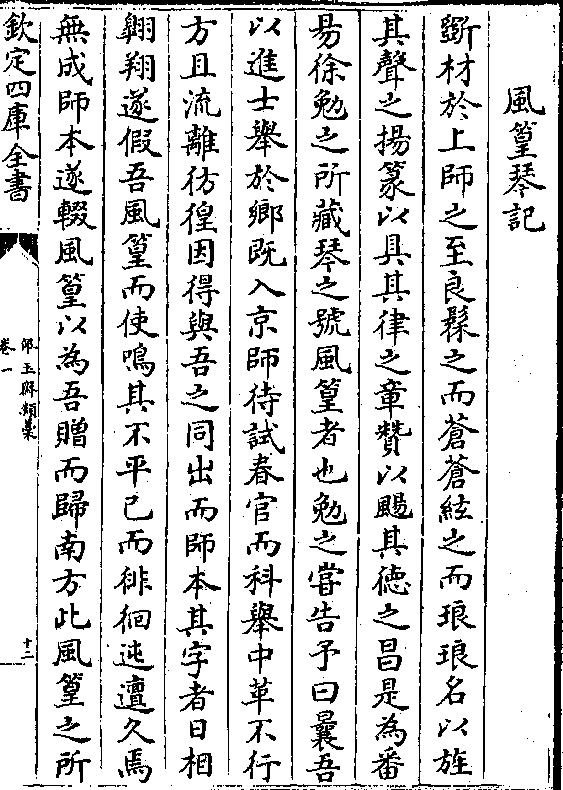 風篁琴記
斲材於上師之至良髹之而蒼蒼絃之而琅琅名以旌
其聲之揚篆以具其律之章贊以颺其德之昌是為番
昜徐勉之所藏琴之號風篁者也勉之嘗告予曰曩吾
以進士舉於鄉既入京師待試春官而科舉中革不行
方且流離彷徨因得與吾之同出而師本其字者日相
翱翔遂假吾風篁而使鳴其不平已而徘徊迍邅久焉
無成師本遂輟風篁以為吾贈而歸南方此風篁之所
欽定四庫全書
卷一
十二